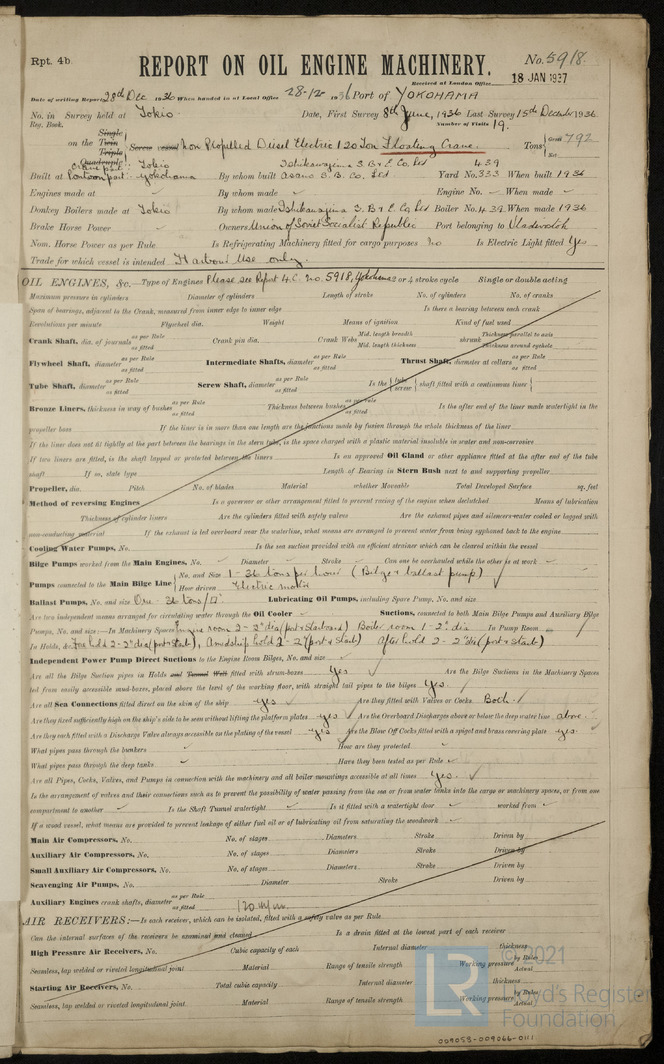 Rpt. 4b
REPORT ON OIL ENGINE MACHINERY.
No. 5918.
Received at London Office 18 JAN 1937
Date of writing Report 28th Dec 1936 When handed in at Local Office 28-12 1936 Port of YOKOHAMA
No. in Survey held at Tokio Date, First Survey 8th June, 1936 Last Survey 15th December 1936.
Reg. Book. Number of Visits 19.
Single
on the Twin Screw vessel Non Propelled Diesel Electric 120 Ton Floating Crane Tons Gross 792
Triple
Quadruple Net
Crane part: Tokio Ishikawajima S. B & E. Co. Ltd 439
Built at Pontoon part: Yokohama By whom built Asano S. B. Co. Ltd Yard No. 333 When built 1936
Engines made at By whom made Engine No. When made
Donkey Boilers made at Tokio By whom made Ishikawajima S. B & E. Co Ltd Boiler No. 439. When made 1936
Brake Horse Power Owners Union of Soviet Socialist Republic Port belonging to Vladivostok
Nom. Horse Power as per Rule Is Refrigerating Machinery fitted for cargo purposes No Is Electric Light fitted Yes
Trade for which vessel is intended Harbour Use only.
OIL ENGINES, &c.—Type of Engines Please see Report 4C. No. 5918, Yokohama 2 or 4 stroke cycle Single or double acting
Maximum pressure in cylinders Diameter of cylinders Length of stroke No. of cylinders No. of cranks
Span of bearings, adjacent to the Crank, measured from inner edge to inner edge Is there a bearing between each crank
Revolutions per minute Flywheel dia. Weight Means of ignition Kind of fuel used
Crank Shaft, dia. of journals as per Rule as fitted Crank pin dia. Crank Webs Mid. length breadth Mid. length thickness shrunk Thickness parallel to axis Thickness around eyehole
Flywheel Shaft, diameter as per Rule as fitted Intermediate Shafts, diameter as per Rule as fitted Thrust Shaft, diameter at collars as per Rule as fitted
Tube Shaft, diameter as per Rule as fitted Screw Shaft, diameter as per Rule as fitted Is the tube screw shaft fitted with a continuous liner
Bronze Liners, thickness in way of bushes as per Rule as fitted Thickness between bushes as per Rule as fitted Is the after end of the liner made watertight in the
propeller boss If the liner is in more than one length are the junctions made by fusion through the whole thickness of the liner
If the liner does not fit tightly at the part between the bearings in the stern tube, is the space charged with a plastic material insoluble in water and non-corrosive
If two liners are fitted, is the shaft lapped or protected between the liners Is an approved Oil Gland or other appliance fitted at the after end of the tube
shaft If so, state type Length of Bearing in Stern Bush next to and supporting propeller
Propeller, dia. Pitch No. of blades Material whether Moveable Total Developed Surface sq. feet
Method of reversing Engines Is a governor or other arrangement fitted to prevent racing of the engine when declutched Means of lubrication
Thickness of cylinder liners Are the cylinders fitted with safety valves Are the exhaust pipes and silencers water cooled or lagged with
non-conducting material If the exhaust is led overboard near the waterline, what means are arranged to prevent water from being syphoned back to the engine
Cooling Water Pumps, No. Is the sea suction provided with an efficient strainer which can be cleared within the vessel
Bilge Pumps worked from the Main Engines, No. Diameter Stroke Can one be overhauled while the other is at work
Pumps connected to the Main Bilge Line No. and Size 1 - 36 tons per hour (Bilge & ballast pump)
How driven Electric motor
Ballast Pumps, No. and size One 36 tons/H. Lubricating Oil Pumps, including Spare Pump, No. and size
Are two independent means arranged for circulating water through the Oil Cooler Suctions, connected to both Main Bilge Pumps and Auxiliary Bilge
Pumps, No. and size:—In Machinery Spaces Engine room 2 - 2" dia (port & starboard) Boiler room 1 - 2" dia In Pump Room
In Holds, &c. Fore hold 2 - 2" dia (port & starb), Amidship hold 2 - 2" (port & starb) After hold 2 - 2" dia (port & starb)
Independent Power Pump Direct Suctions to the Engine Room Bilges, No. and size
Are all the Bilge Suction pipes in Holds and Tunnel Well fitted with strum-boxes Yes Are the Bilge Suctions in the Machinery Spaces
led from easily accessible mud-boxes, placed above the level of the working floor, with straight tail pipes to the bilges Yes.
Are all Sea Connections fitted direct on the skin of the ship Yes Are they fitted with Valves or Cocks Both.
Are they fixed sufficiently high on the ship's side to be seen without lifting the platform plates yes Are the Overboard Discharges above or below the deep water line above
Are they each fitted with a Discharge Valve always accessible on the plating of the vessel yes Are the Blow Off Cocks fitted with a spigot and brass covering plate yes.
What pipes pass through the bunkers How are they protected
What pipes pass through the deep tanks Have they been tested as per Rule
Are all Pipes, Cocks, Valves, and Pumps in connection with the machinery and all boiler mountings accessible at all times Yes.
Is the arrangement of valves and their connections such as to prevent the possibility of water passing from the sea or from water tanks into the cargo or machinery spaces, or from one
compartment to another Is the Shaft Tunnel watertight Is it fitted with a watertight door worked from
If a wood vessel, what means are provided to prevent leakage of either fuel oil or of lubricating oil from saturating the woodwork
Main Air Compressors, No. No. of stages Diameters Stroke Driven by
Auxiliary Air Compressors, No. No. of stages Diameters Stroke Driven by
Small Auxiliary Air Compressors, No. No. of stages Diameters Stroke Driven by
Scavenging Air Pumps, No. Diameter Stroke Driven by
Auxiliary Engines crank shafts, diameter as per Rule as fitted 120 m/m.
AIR RECEIVERS:—Is each receiver, which can be isolated, fitted with a safety valve as per Rule
Can the internal surfaces of the receivers be examined and cleaned Is a drain fitted at the lowest part of each receiver
High Pressure Air Receivers, No. Cubic capacity of each Internal diameter thickness
Seamless, lap welded or riveted longitudinal joint Material Range of tensile strength Working pressure by Rules Actual
Starting Air Receivers, No. Total cubic capacity Internal diameter thickness
Seamless, lap welded or riveted longitudinal joint Material Range of tensile strength Working pressure by Rules Actual
LR
© 2021
Lloyd's Register
Foundation
009053-009066-0111